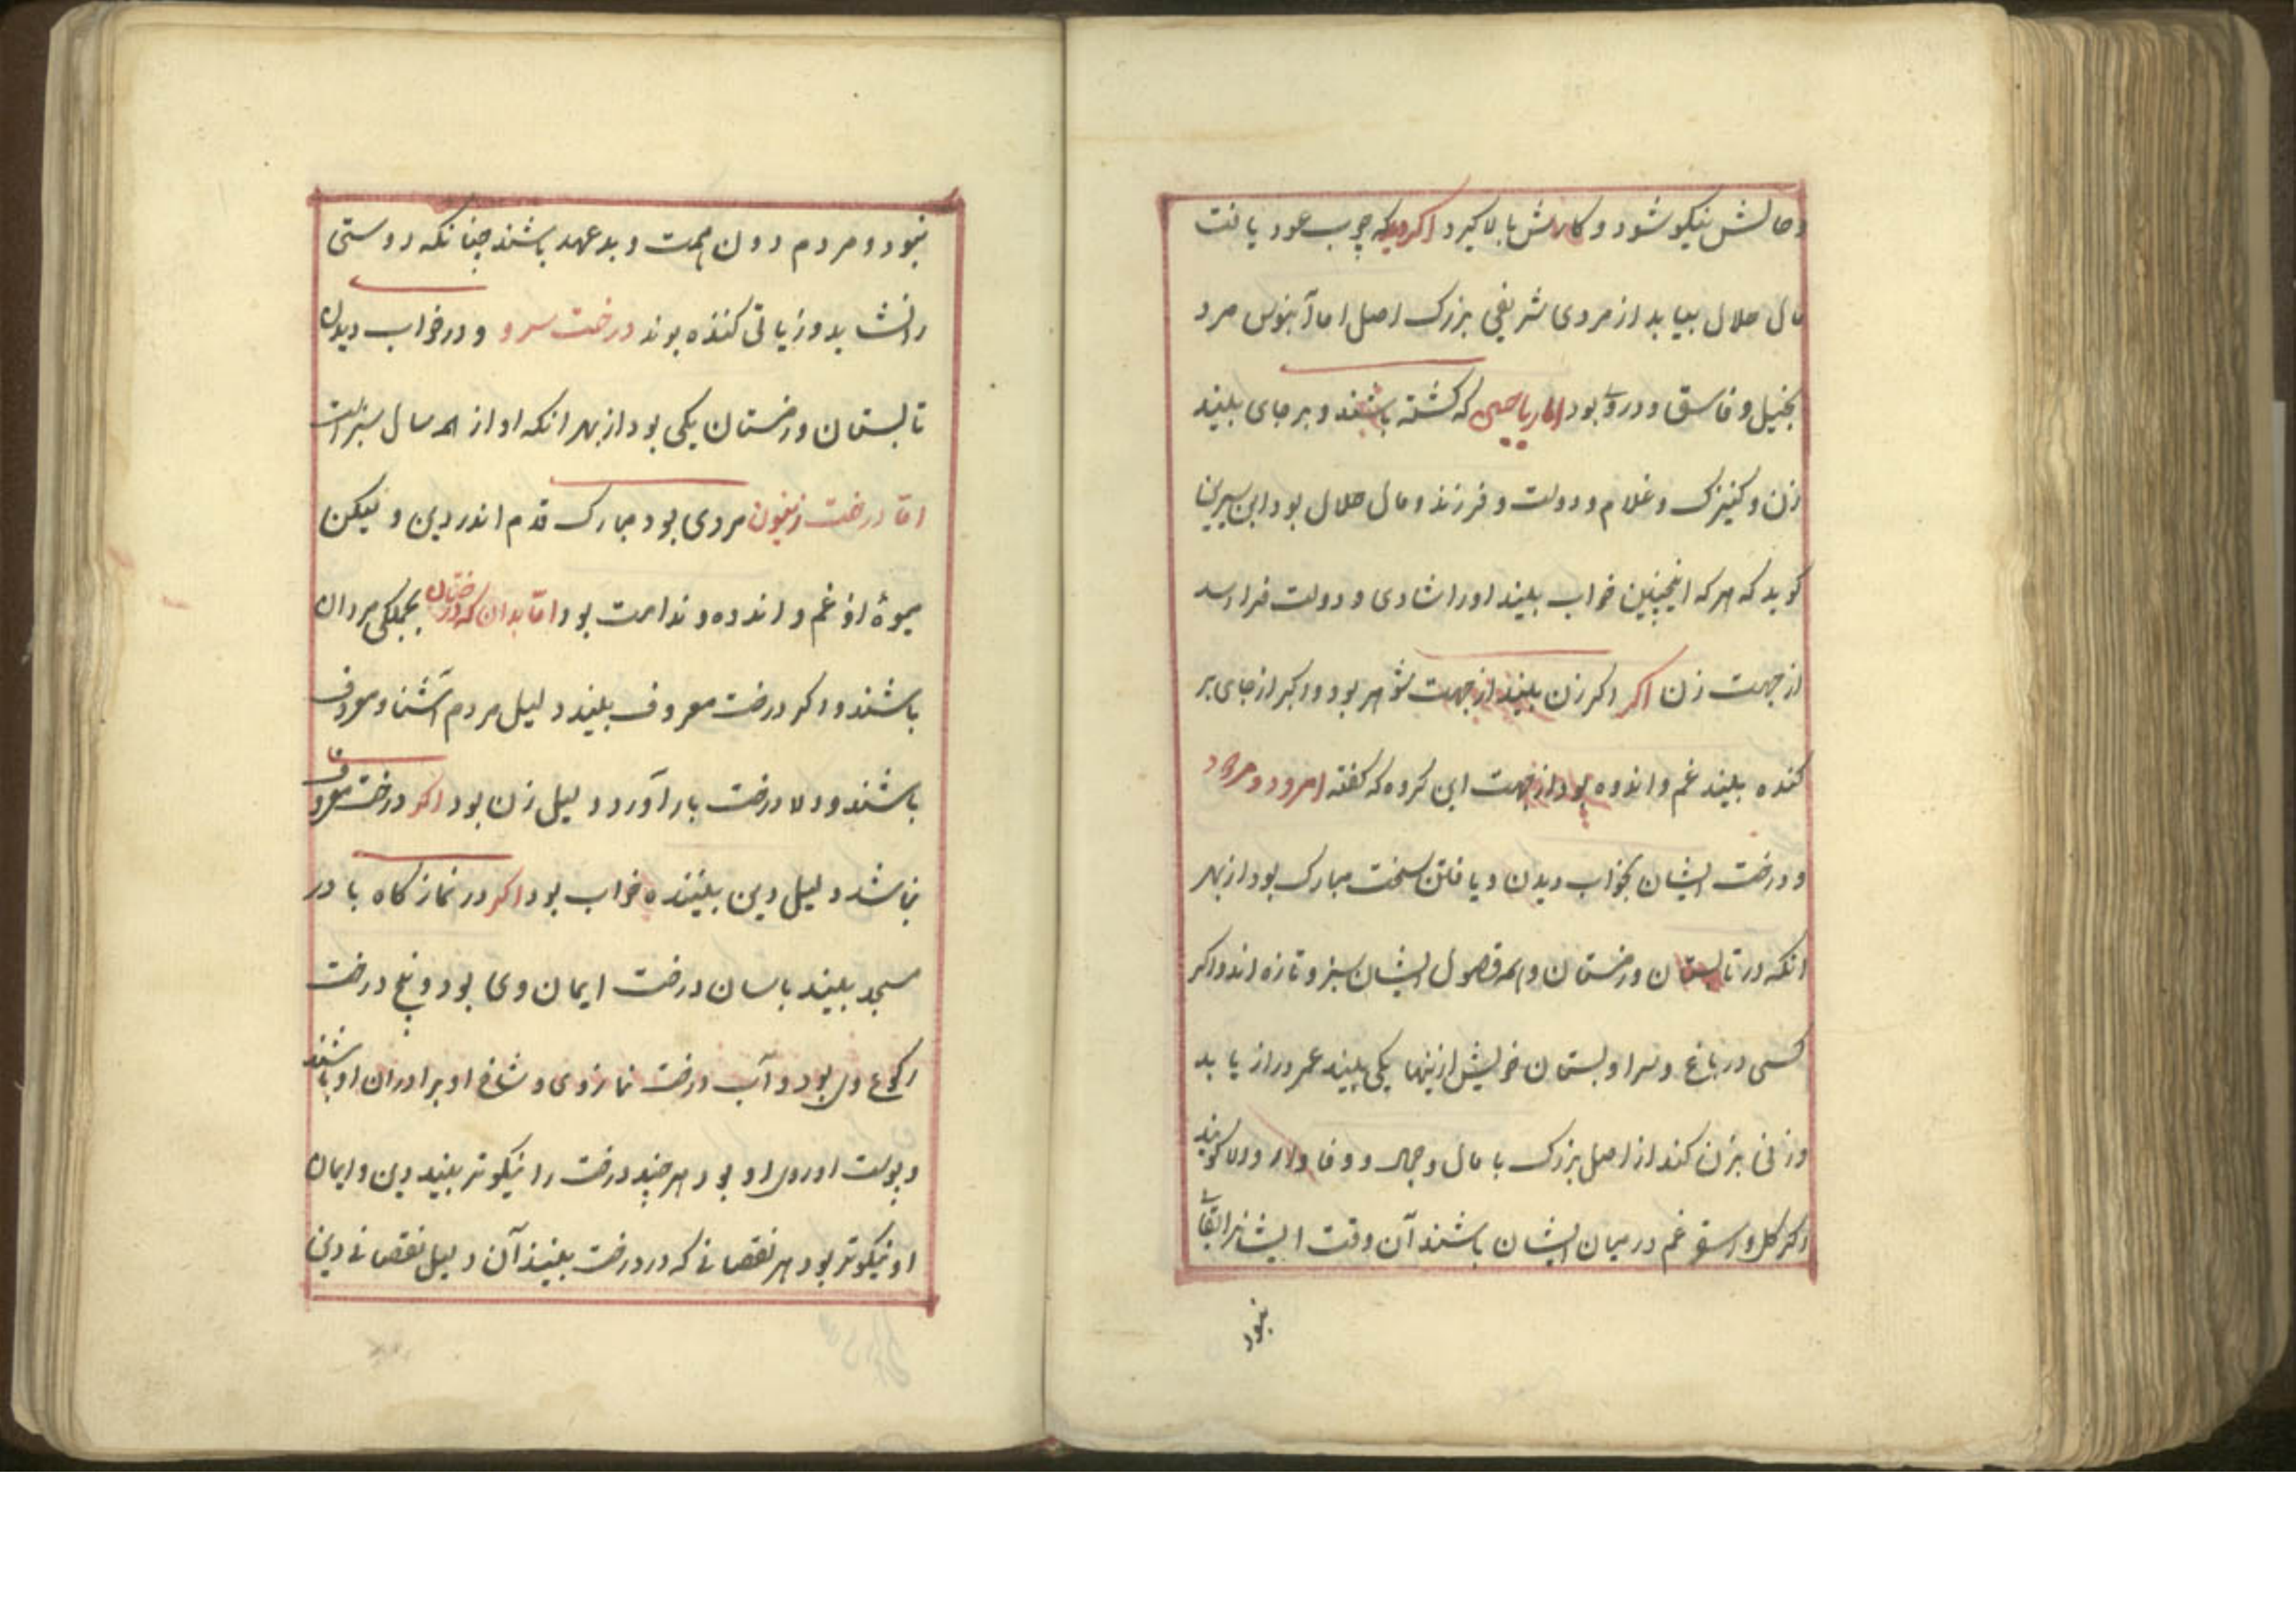 و حالش نیکو شود و کارش بالا کیرد اکر دید که چوب عود یافت
مال حلال بیابد از مردی شریفی بزرک اصل اما آبنوس مرد
بخیل و فاسق و دروی بود اما ریاحین که کشته باشند و بر جای بیند
زن و کنیزک و غلام و دولت و فرزند و مال حلال بود ابن سیرین
کوید که هر که اینچنین خواب بیند او را شادی و دولت فرا رسد
از جهت زن اکر اکر زن بیند از جهت شوهر بود و اکر از جای بر
کنده بیند غم و اندوه بود از جهت این کروه که کفته امرود و مورد
و درخت ایشان بخواب دیدن و یافتن سخت مبارک بود از بهر
انکه در تابستان و زمستان و همه فصول ایشان سبز و تازه اند و اکر
کسی در باغ و سرا و بستان خویش ازینها یکی بیند عمر دراز یابد
و زنی بزن کند از اصل بزرک با مال و جمال و وفادار و
اکر کل و غم در میان ایشان باشند آن وقت ایشانرا بقای
نبود
نبود و مردم دون همت و بد عهد باشند چنانکه دوستی
را نشاید و زیانی کننده بوند درخت سرو و در خواب دیدن
تابستان و زمستان یکی بود از بهر انکه او از همه سال سبز است
اما درخت زیتون مردی بود مبارک قدم اندر دین و لیکن
میوهٔ او غم و اندوه و ندامت بود اما بدان که درختان بجملکی مردان
باشند و اکر درخت معروف بیند دلیل مردم آشنا و معروف
باشند و درخت بار آورد دلیل زن بود اکر درخت معروف
نباشد دلیل دین بیننده خواب بود اکر در نماز کاه یا در
مسجد بیند باسان درخت ایمان وی بود و بیخ درخت
رکوع وی بود و آب درخت نماز وی و شاخ او برادران او باشند
و پوست او روی او بود هر چند درخت را نیکوتر بیند دین و ایمان
او نیکوتر بود هر نقصانی که در درخت بیند آن دلیل نقصانی دین